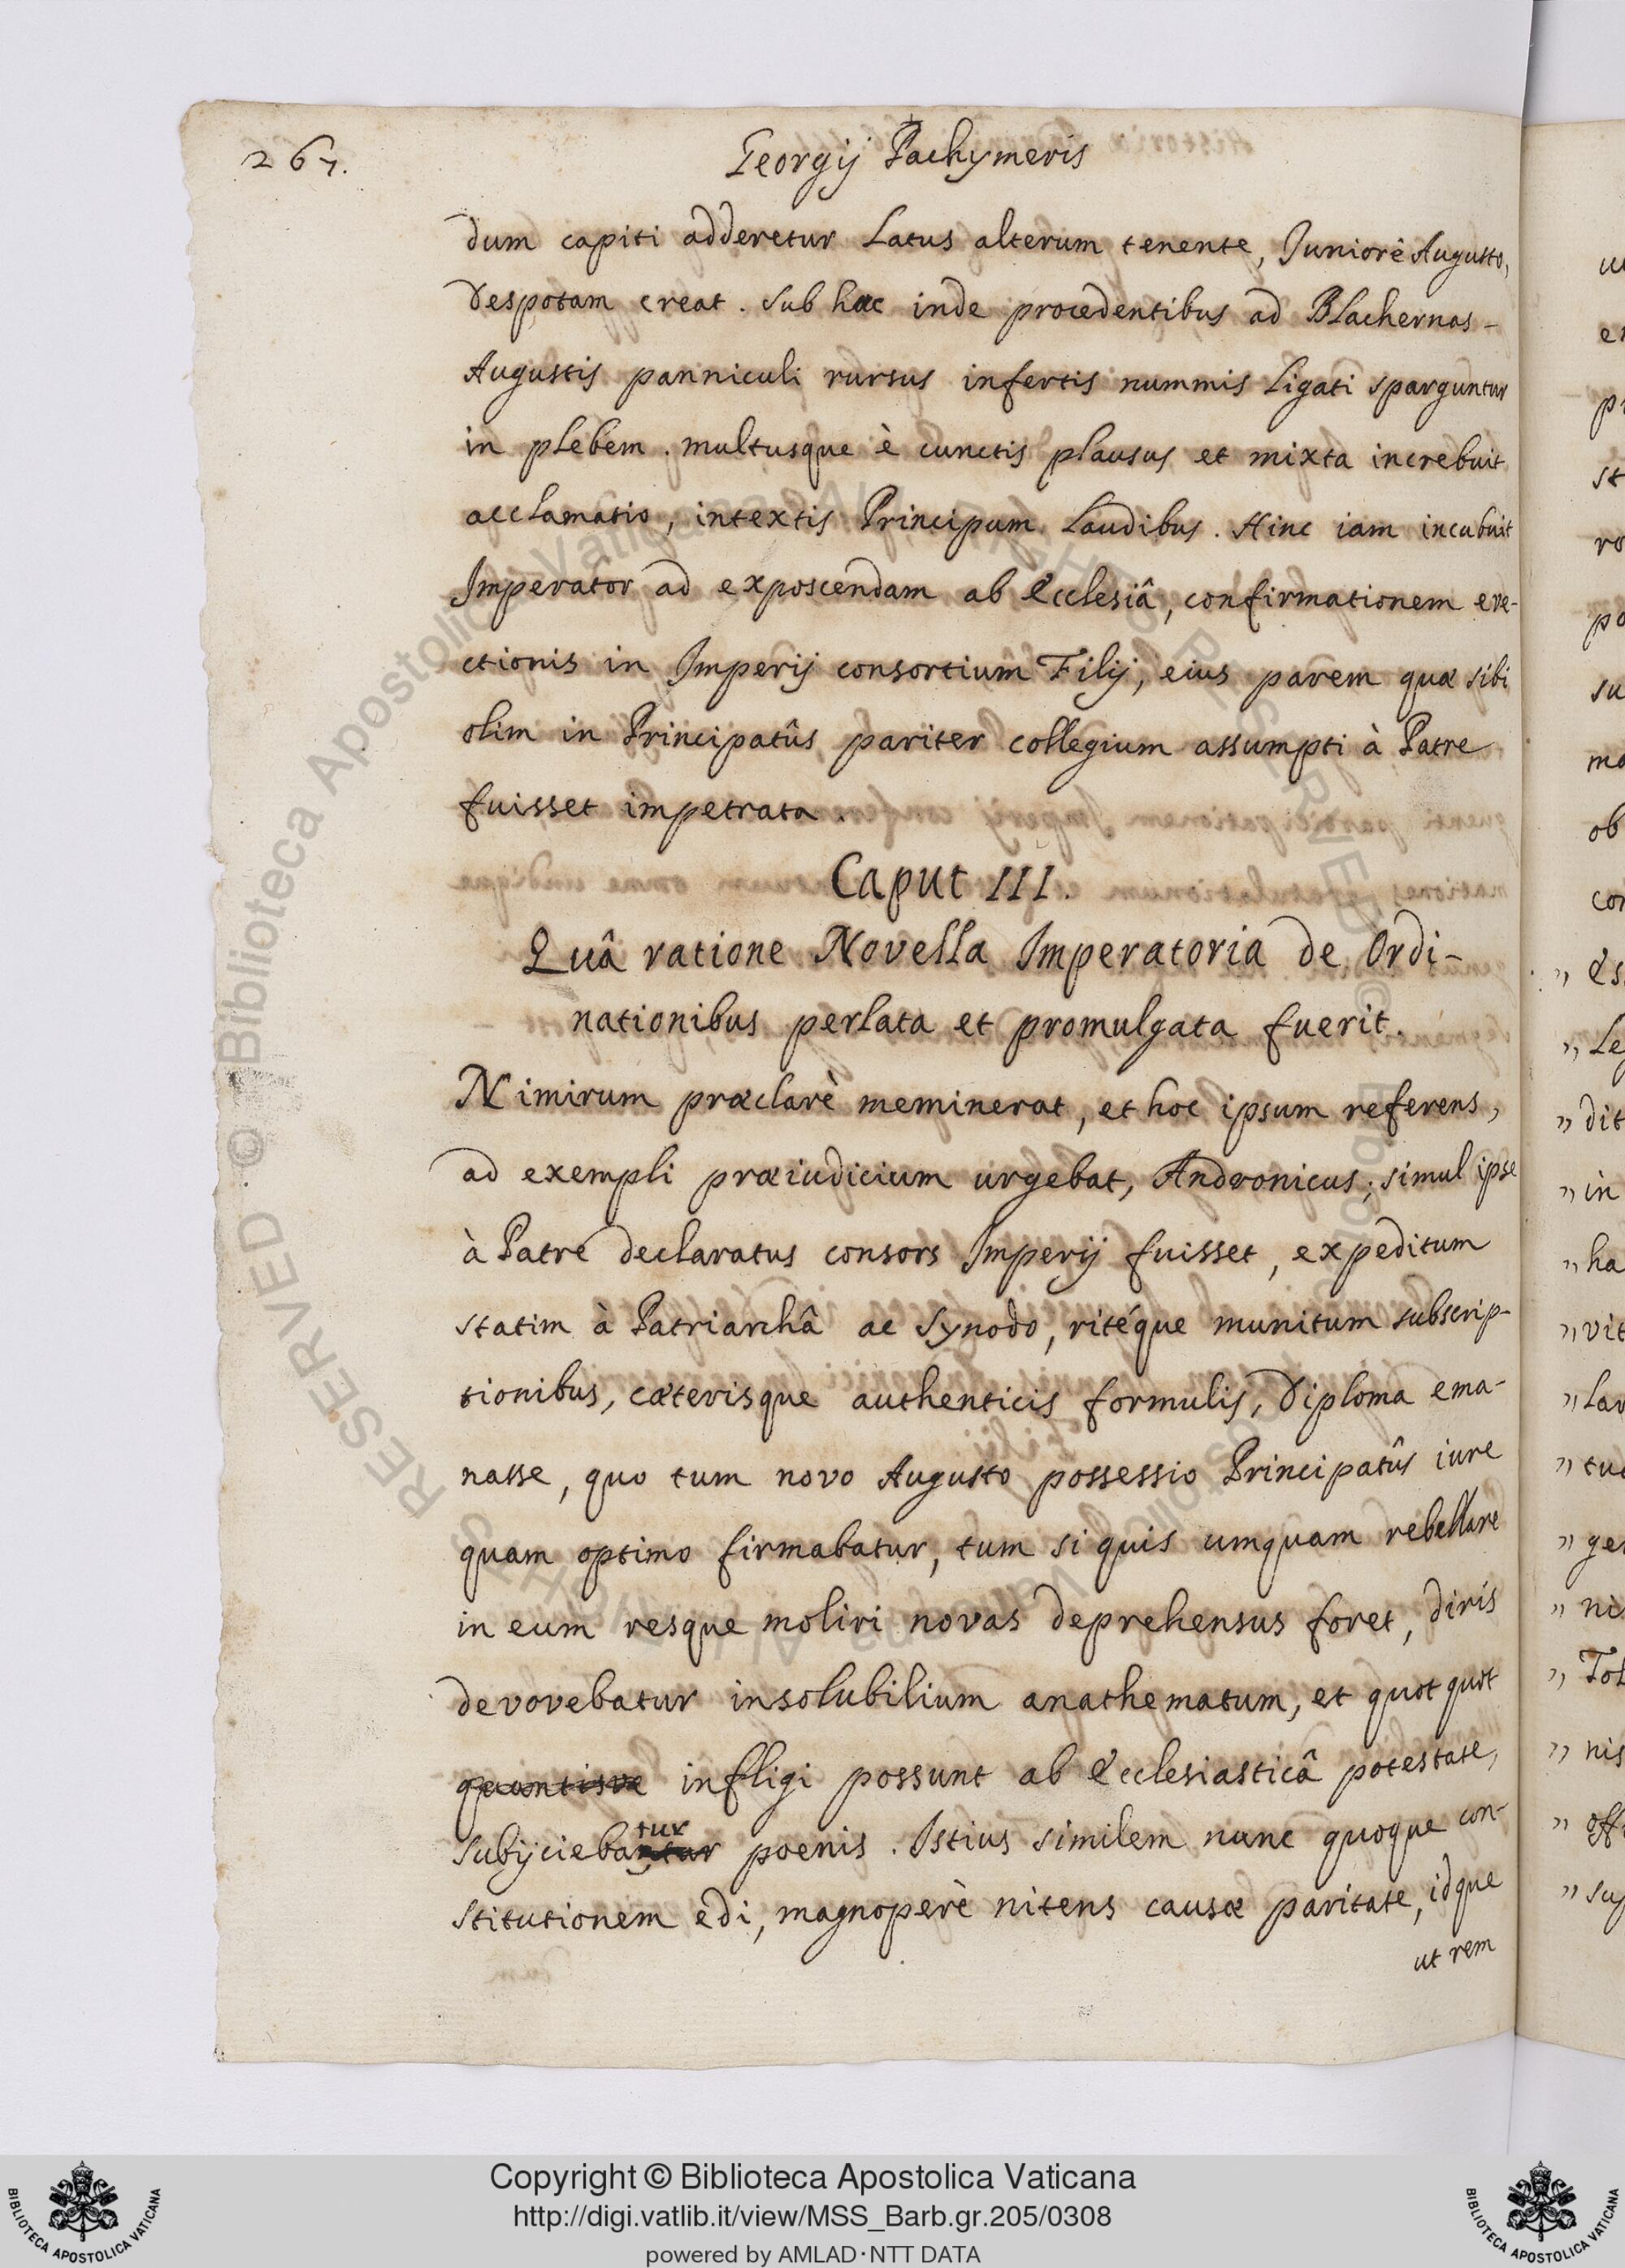 267.
Georgij Pachymeris
dum capiti adderetur Latus alterum tenente, Juniore Augusto,
Despotam creat. Sub hæc inde procedentibus ad Blachernas-
Augustis panniculi rursus infertis nummis Ligati sparguntur
in plebem. multusque è cunctis plausus et mixta increbuit
acclamatio, intextis Principum Laudibus. Hinc iam incubuit
Imperator ad exposcendam ab Ecclesiâ, confirmationem eve-
ctionis in Imperij consortium Filij, eius parem quæ sibi
olim in Principatûs pariter collegium assumpti à Patre
fuisset impetrata.
Caput III.
Quâ ratione Novella Imperatoria de Ordi-
nationibus perlata et promulgata fuerit.
Nimirum præclarè meminerat, et hoc ipsum referens,
ad exempli præiudicium urgebat, Andronicus; simul ipse
à Patre declaratus consors Imperij fuisset, expeditum
statim à Patriarchâ ac Synodo, ritéque munitum subscrip-
tionibus, cæterisque authenticis formulis, Diploma ema-
nasse, quo tum novo Augusto possessio Principatûs iure
quam optimo firmabatur, tum si quis umquam rebellare
in eum resque moliri novas deprehensus foret, diris
devovebatur insolubilium anathematum, et quotquot
quantisve infligi possunt ab Ecclesiasticâ potestate,
tur
subijcieba poenis. Istius similem nunc quoque con-
stitutionem edi, magnoperè nitens causæ paritate, idque
ut rem
Copyright © Biblioteca Apostolica Vaticana
http://digi.vatlib.it/view/MSS_Barb.gr.205/0308
powered by AMLAD·NTT DATA
BIBLIOTECA APOSTOLICA VATICANA
BIBLIOTECA APOSTOLICA VATICANA